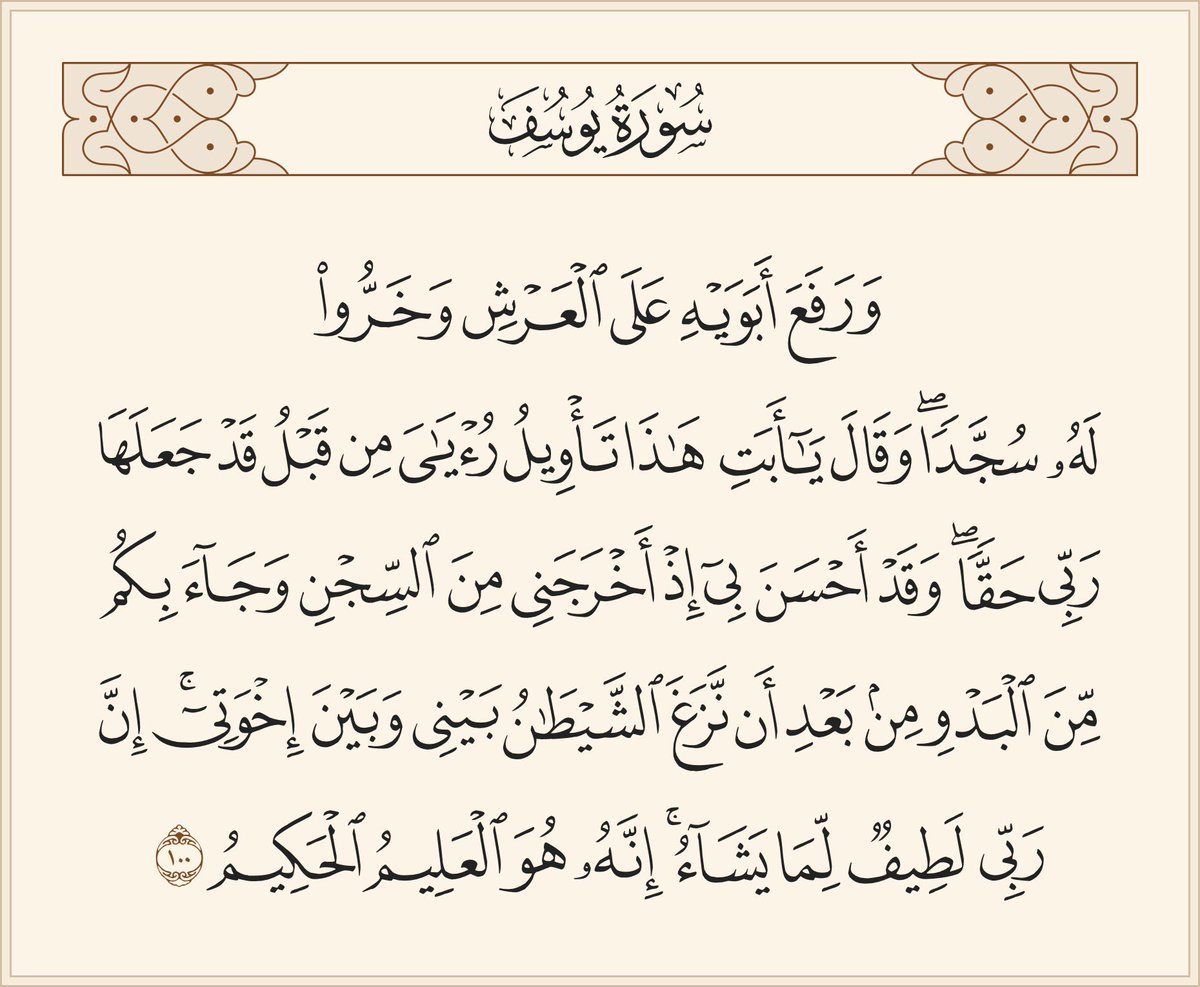 سُورَةُ يُوسُفَ
وَرَفَعَ أَبَوَيۡهِ عَلَى ٱلۡعَرۡشِ وَخَرُّواْ
لَهُۥ سُجَّدٗاۖ وَقَالَ يَٰٓأَبَتِ هَٰذَا تَأۡوِيلُ رُءۡيَٰيَ مِن قَبۡلُ قَدۡ جَعَلَهَا
رَبِّي حَقّٗاۖ وَقَدۡ أَحۡسَنَ بِيٓ إِذۡ أَخۡرَجَنِي مِنَ ٱلسِّجۡنِ وَجَآءَ بِكُم
مِّنَ ٱلۡبَدۡوِ مِنۢ بَعۡدِ أَن نَّزَغَ ٱلشَّيۡطَٰنُ بَيۡنِي وَبَيۡنَ إِخۡوَتِيٓۚ إِنَّ
رَبِّي لَطِيفٞ لِّمَا يَشَآءُۚ إِنَّهُۥ هُوَ ٱلۡعَلِيمُ ٱلۡحَكِيمُ ١٠٠